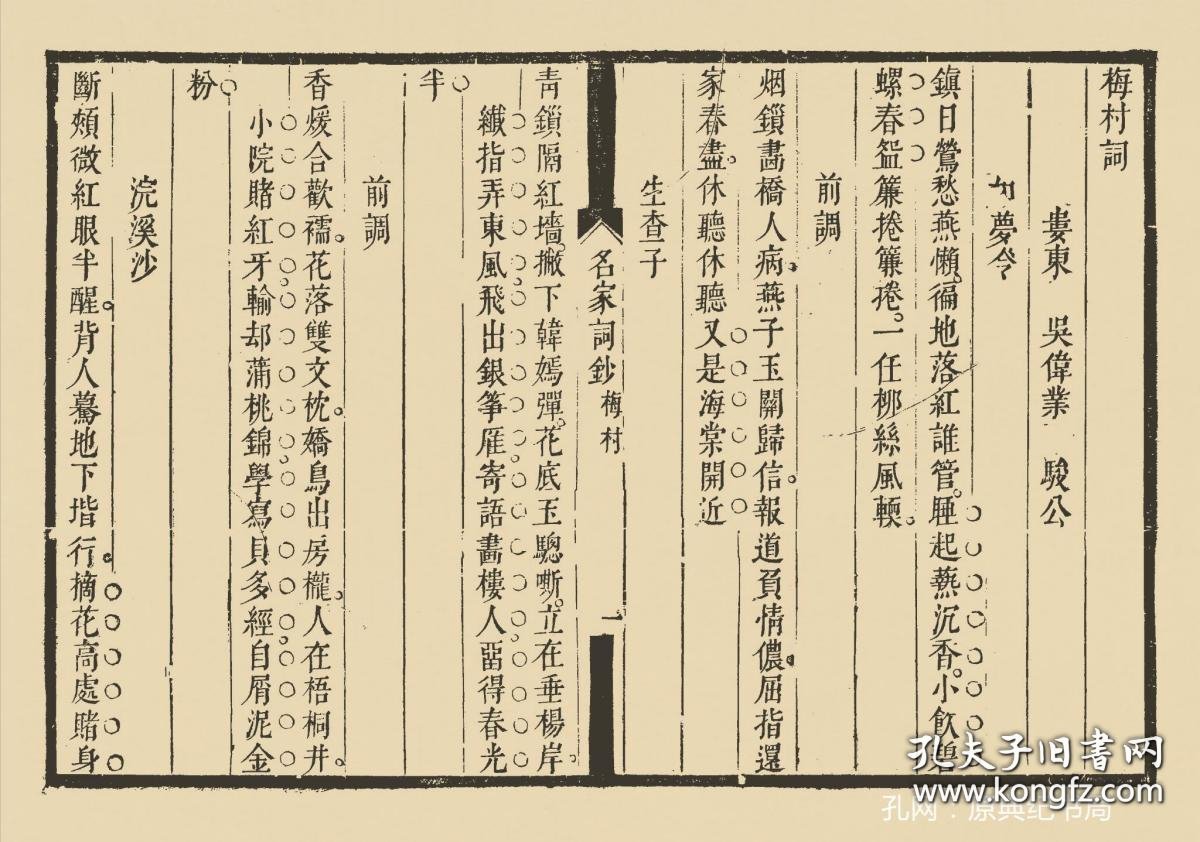 梅村詞
婁東 吳偉業 駿公
如夢令
鎮日鶯愁燕懶。徧地落紅誰管。睡起爇沉香。小飮碧
螺春盌簾捲簾捲。一任栁絲風輭。
前調
烟鎖畵橋人病。燕子玉關歸信。報道負情儂。屈指還
家春盡。休聽休聽又是海棠開近
生查子
青鎖隔紅墻。撇下韓嫣彈。花底玉驄嘶。立在垂楊岸。
纖指弄東風飛出銀箏雁寄語畵樓人留得春光
半
前調
香煖合歡襦。花落雙文枕。嬌鳥出房櫳。人在梧桐井。
小院賭紅牙輸却蒲桃錦學寫貝多經自屑泥金
粉
浣溪沙
斷頰微紅眼半醒。背人驀地下堦行。摘花高處賭身
名家詞鈔 梅村 一
孔夫子旧书网
www.kongfz.com
孔网：原典纪书局